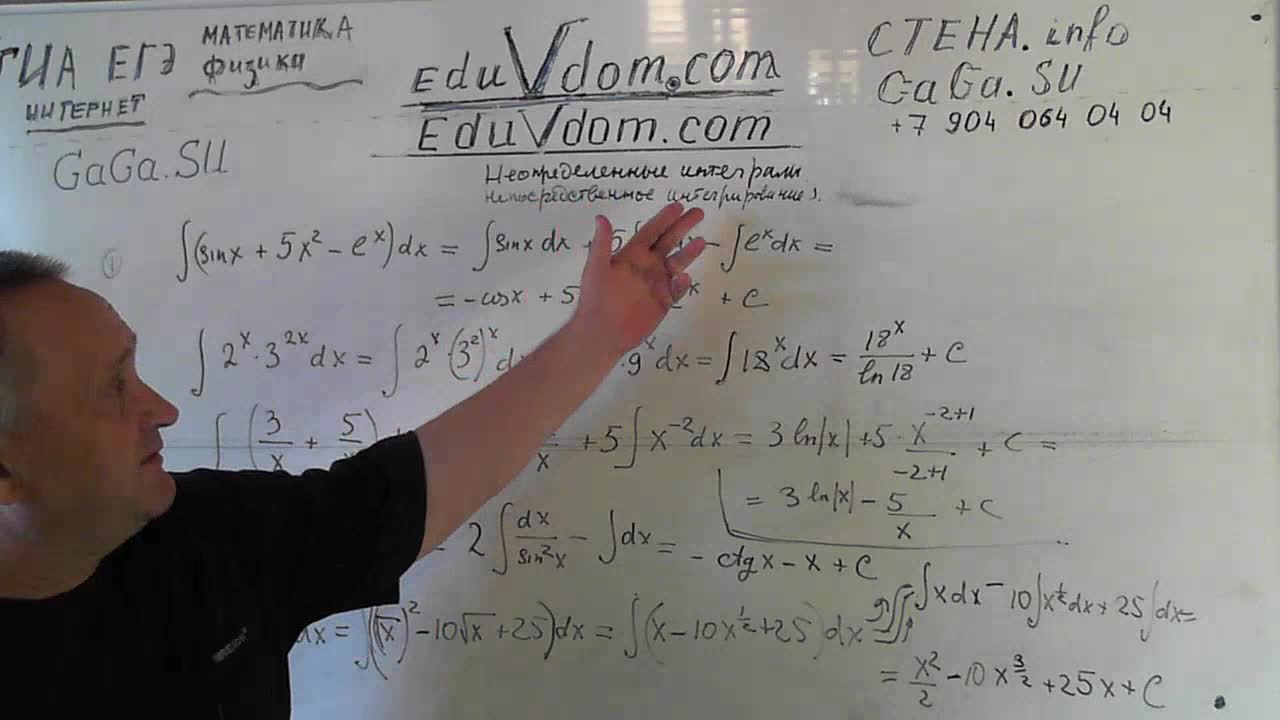 ГИА ЕГЭ МАТЕМАТИКА
физика
ИНТЕРНЕТ
GaGa.SU
EduVdom.com
EduVdom.com
СТЕНА.info
GaGa.SU
+7 904 064 04 04
Неопределенные интегралы
непосредственное интегрирование).
①
∫(sinx + 5x² − eˣ)dx = ∫sinx dx + 5∫ − ∫eˣdx =
= −cosx + 5 eˣ + C
∫2ˣ·3²ˣdx = ∫2ˣ·(3²)ˣdx ·9ˣdx = ∫18ˣdx = 18ˣ/ln18 + C
∫(3/x + 5/x /x + 5∫x⁻²dx = 3ln|x| + 5·x⁻²⁺¹/−2+1 + C =
= 3ln|x| − 5/x + C
2∫dx/sin²x − ∫dx = −ctgx − x + C
dx = ∫((√x)² − 10√x + 25)dx = ∫(x − 10x^½ + 25)dx = ∫xdx − 10∫x^½dx + 25∫dx =
= x²/2 − 10x^3/2 + 25x + C